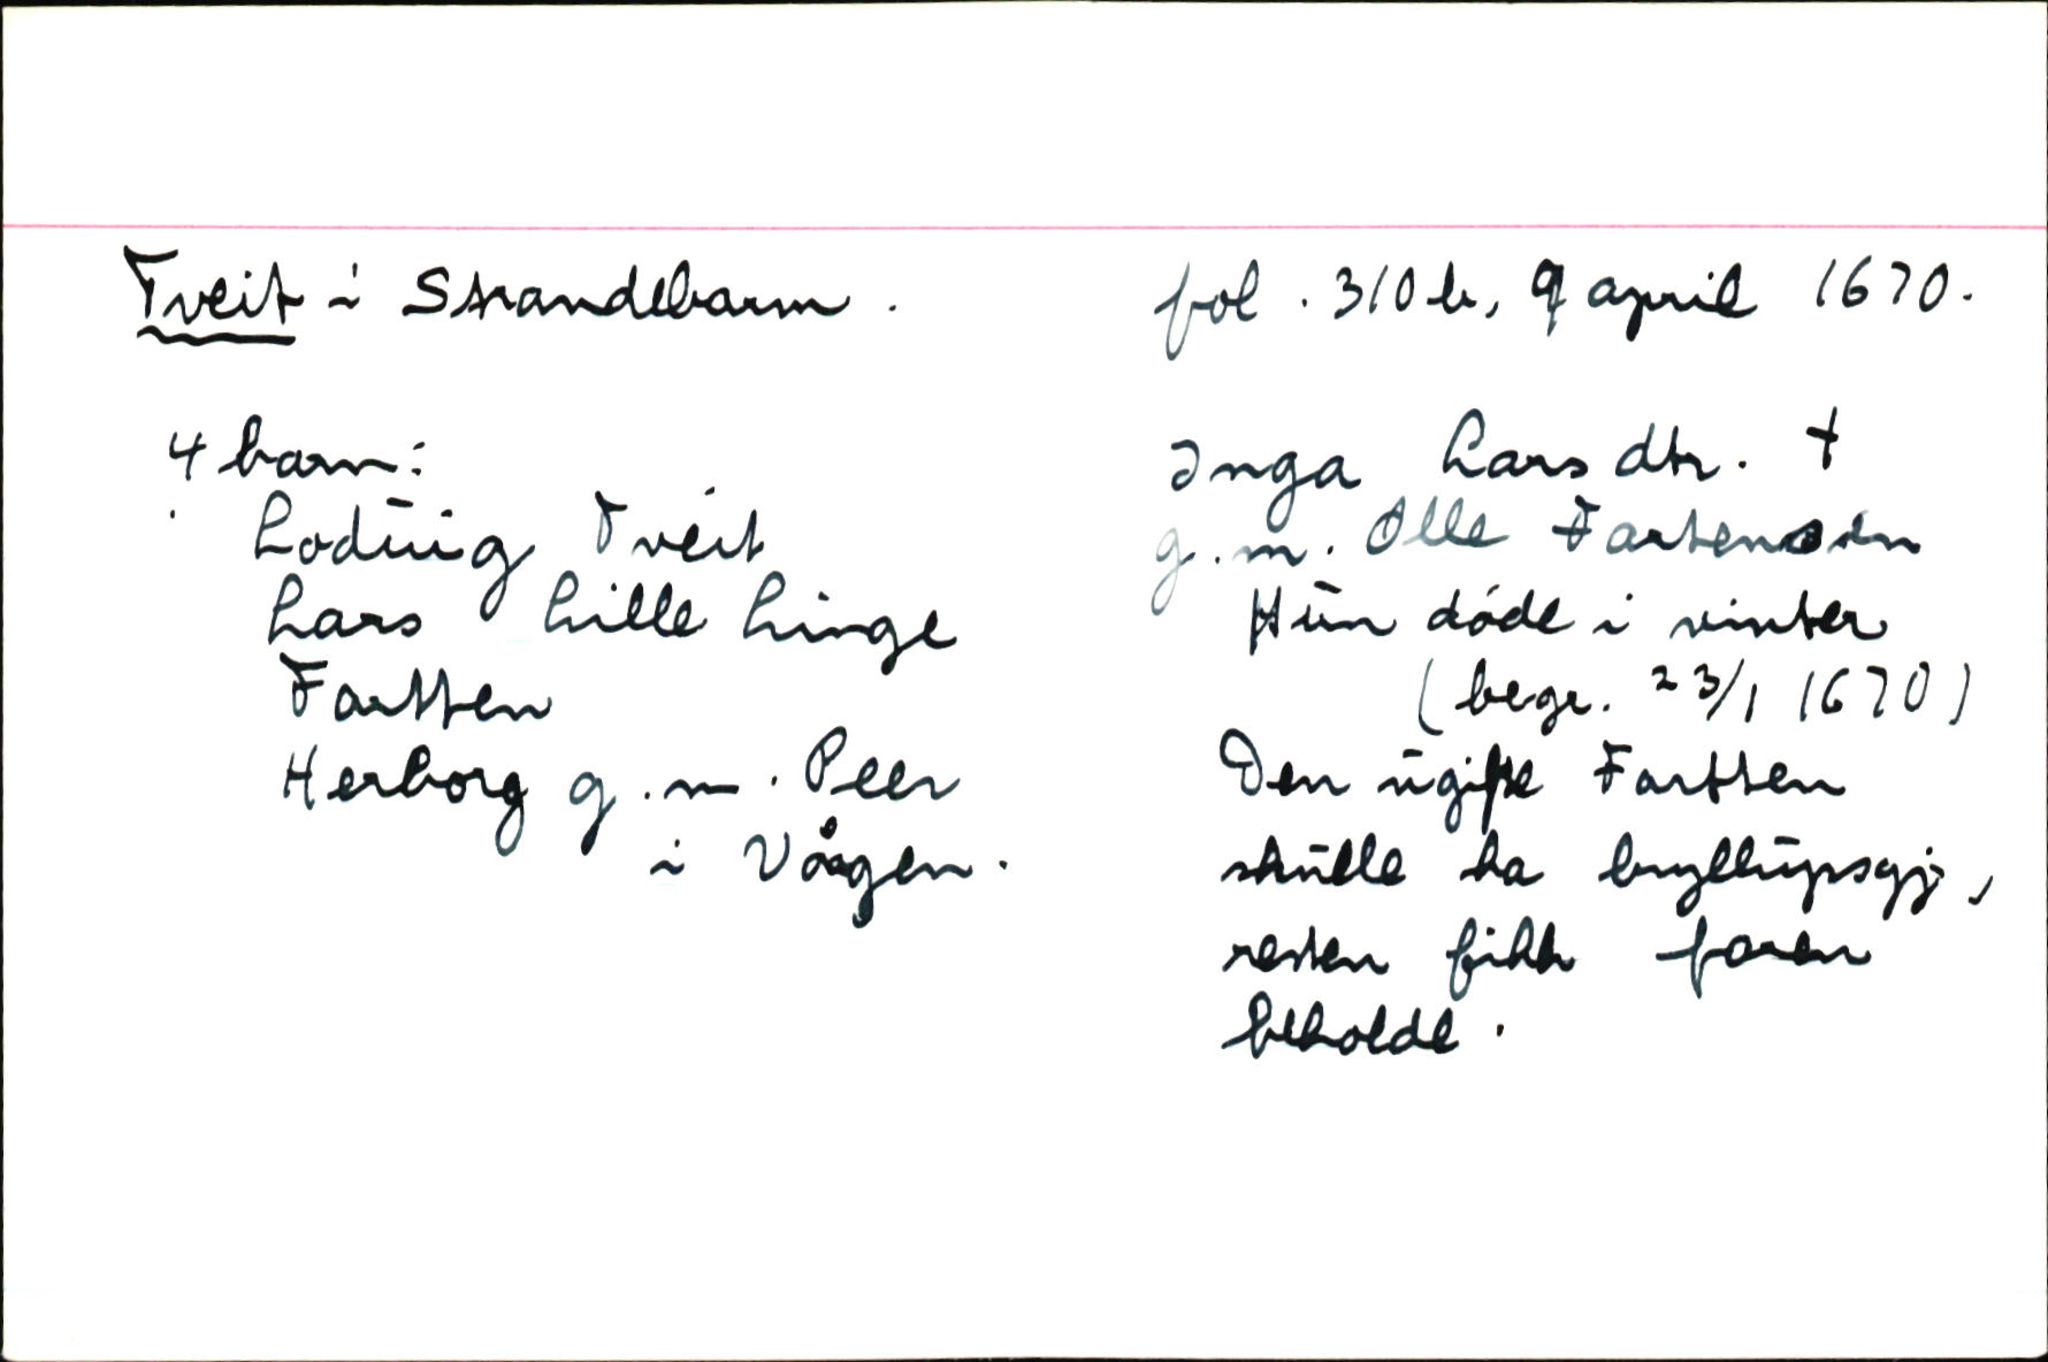 Tveit i Strandebarm. fol. 310 b, 9 april 1670.
4 barn:
Lodūig Tveit
Lars Lille Linge
Fartten
Herborg g.m. Peer
i Vågen.
Inga Lars dtr. †
g.m. Olle Fartensen
Hūn døde i vinter
(begr. 23/1 1670)
Den ūgifte Fartten
skūlle ha bryllūpsgj,
resten fikk faren
beholde.